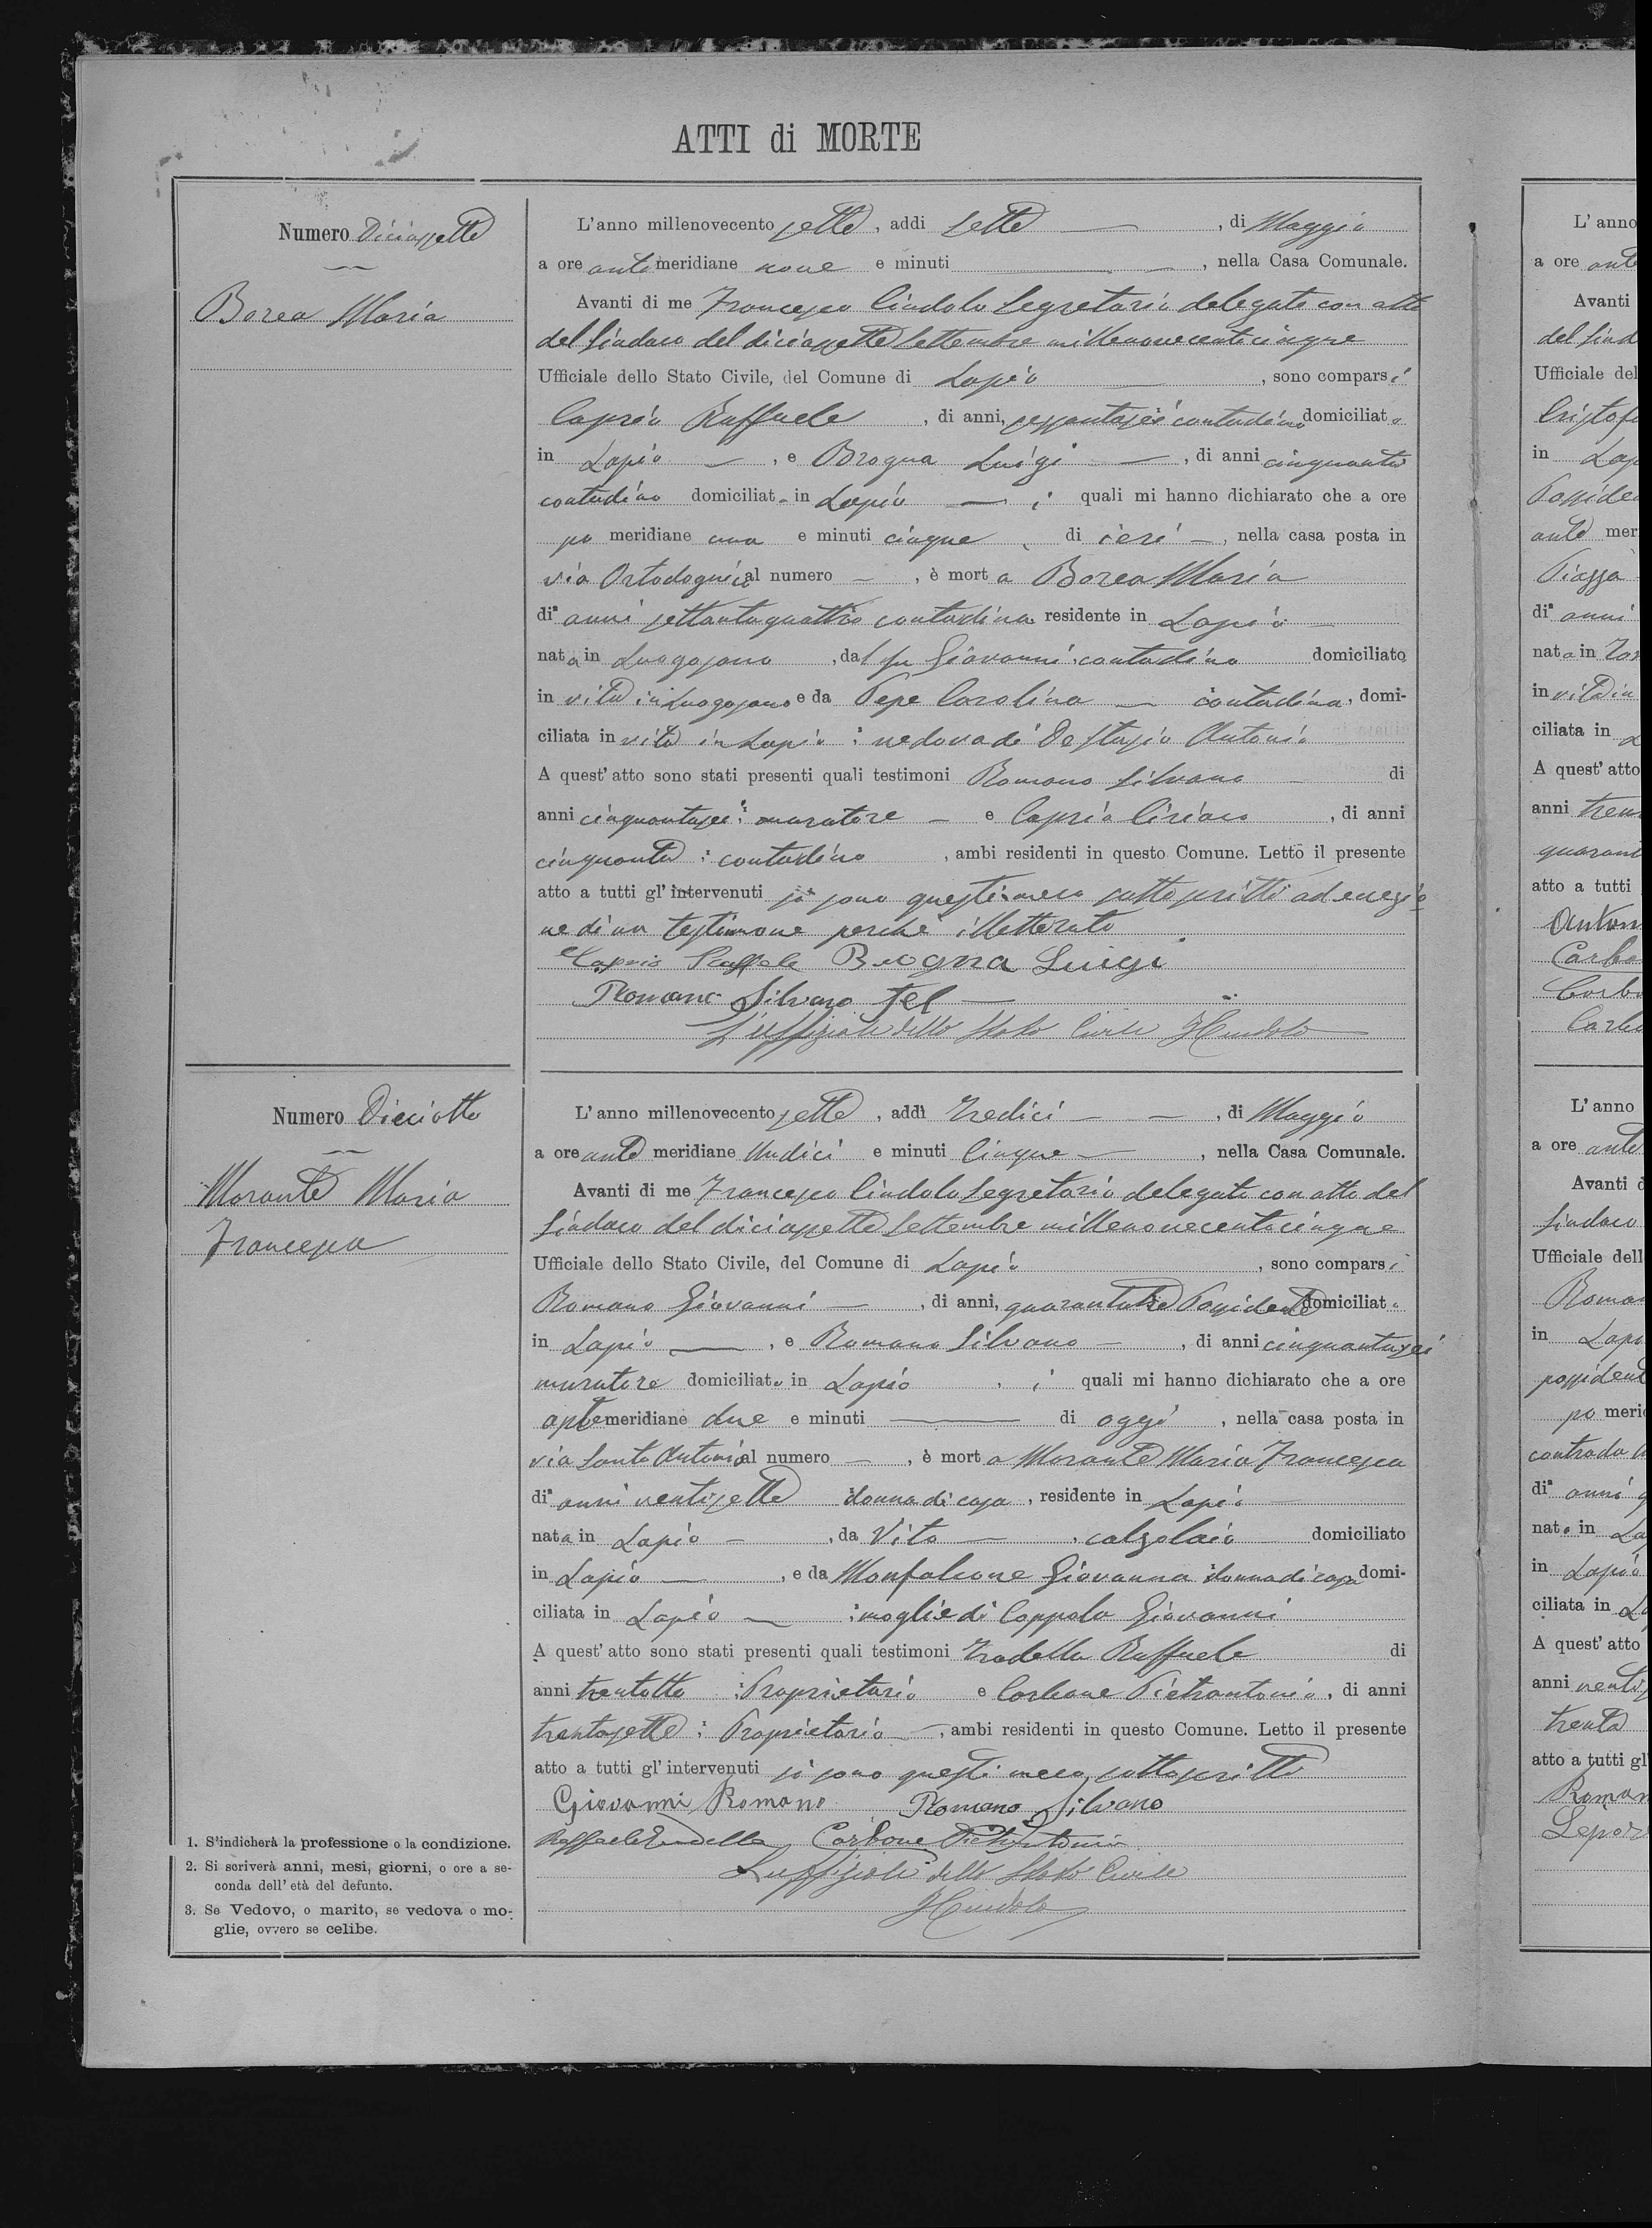 ATTI di MORTE
Numero Diciassette
Borea Maria
L'anno millenovecento sette, addi sette, di Maggio
a ore antimeridiane nove e minuti —, nella Casa Comunale.
Avanti di me Francesco Cindolo Segretario delegato con atto
del Sindaco del diciassette Settembre millenovecentocinque
Ufficiale dello Stato Civile, del Comune di Lapio —, sono comparsi
Caprio Raffaele, di anni, sessantasei contadino domiciliato
in Lapio —, e Brogna Luigi —, di anni cinquanta
contadino domiciliato in Lapio — i quali mi hanno dichiarato che a ore
po meridiane una e minuti cinque, di ieri —, nella casa posta in
via al numero —, è morta Borea Maria
di² anni settantaquattro contadina residente in Lapio —
nata in Luogosano, dal fu Giovanni, contadino domiciliato
in vita in Luogosano e da Pepe Carolina — contadina, domi-
ciliata in vita in Lapio: vedova di De Stasio Antonio
A quest'atto sono stati presenti quali testimoni Romano Silvano — di
anni cinquantasei: muratore — e Caprio Ciriaco, di anni
cinquanta: contadino, ambi residenti in questo Comune. Letto il presente
atto a tutti gl'intervenuti si sono questi meco sottoscritti ad eccezio
ne di un testimone perchè illetterato
Caprio Raffaele Brogna Luigi
Romano Silvano Tel —
L'uffiziale dello Stato Civile FCindolo
Numero Diciotto
Morante Maria
Francesca
L'anno millenovecento sette, addì tredici — —, di Maggio
a ore ante meridiane Undici e minuti Cinque —, nella Casa Comunale.
Avanti di me Francesco Cindolo Segretario delegato con atto del
Sindaco del diciassette Settembre millenovecentocinque
Ufficiale dello Stato Civile, del Comune di Lapio, sono comparsi
Romano Giovanni —, di anni, quarantatre Possidente domiciliato
in Lapio —, e Romano Silvano —, di anni cinquantasei
muratore domiciliato in Lapio, i quali mi hanno dichiarato che a ore
antemeridiane due e minuti — di oggi, nella casa posta in
via Santo Antonio al numero —, è morta Morante Maria Francesca
di² anni ventisette donna di casa, residente in Lapio —
nata in Lapio —, da Vito —, calzolaio domiciliato
in Lapio —, e da Monfalcone Giovanna donna di casa domi-
ciliata in Lapio — : moglie di Coppola Giovanni
A quest'atto sono stati presenti quali testimoni Raffaele di
anni trentotto: Proprietario e Carbone Pietrantonio, di anni
trentasette: Proprietario —, ambi residenti in questo Comune. Letto il presente
atto a tutti gl'intervenuti si sono questi meco sottoscritti
Giovanni Romano Romano Silvano
Raffaele Carbone Pietrantonio
L'uffiziale dello Stato Civile
FCindolo
1. S'indicherà la professione o la condizione.
2. Si scriverà anni, mesi, giorni, o ore a se-
conda dell'età del defunto.
3. Se Vedovo, o marito, se vedova o mo-
glie, ovvero se celibe.
L'anno
a ore ante
Avanti
del Sind
Ufficiale del
Cristofa
in Lap
Posside
ante mer
Piazza
di² anni
nata in
in vita in
ciliata in
A quest'atto
anni tren
quarant
atto a tutti
Anton
Carbo
Carbo
L'anno
a ore ante
Avanti d
Sindaco
Ufficiale dell
Roman
in Lapi
possident
po meri
contrada
di² anni
nato in La
in Lapio
ciliata in
A quest'atto
anni ventis
trenta
atto a tutti gl'
Roman